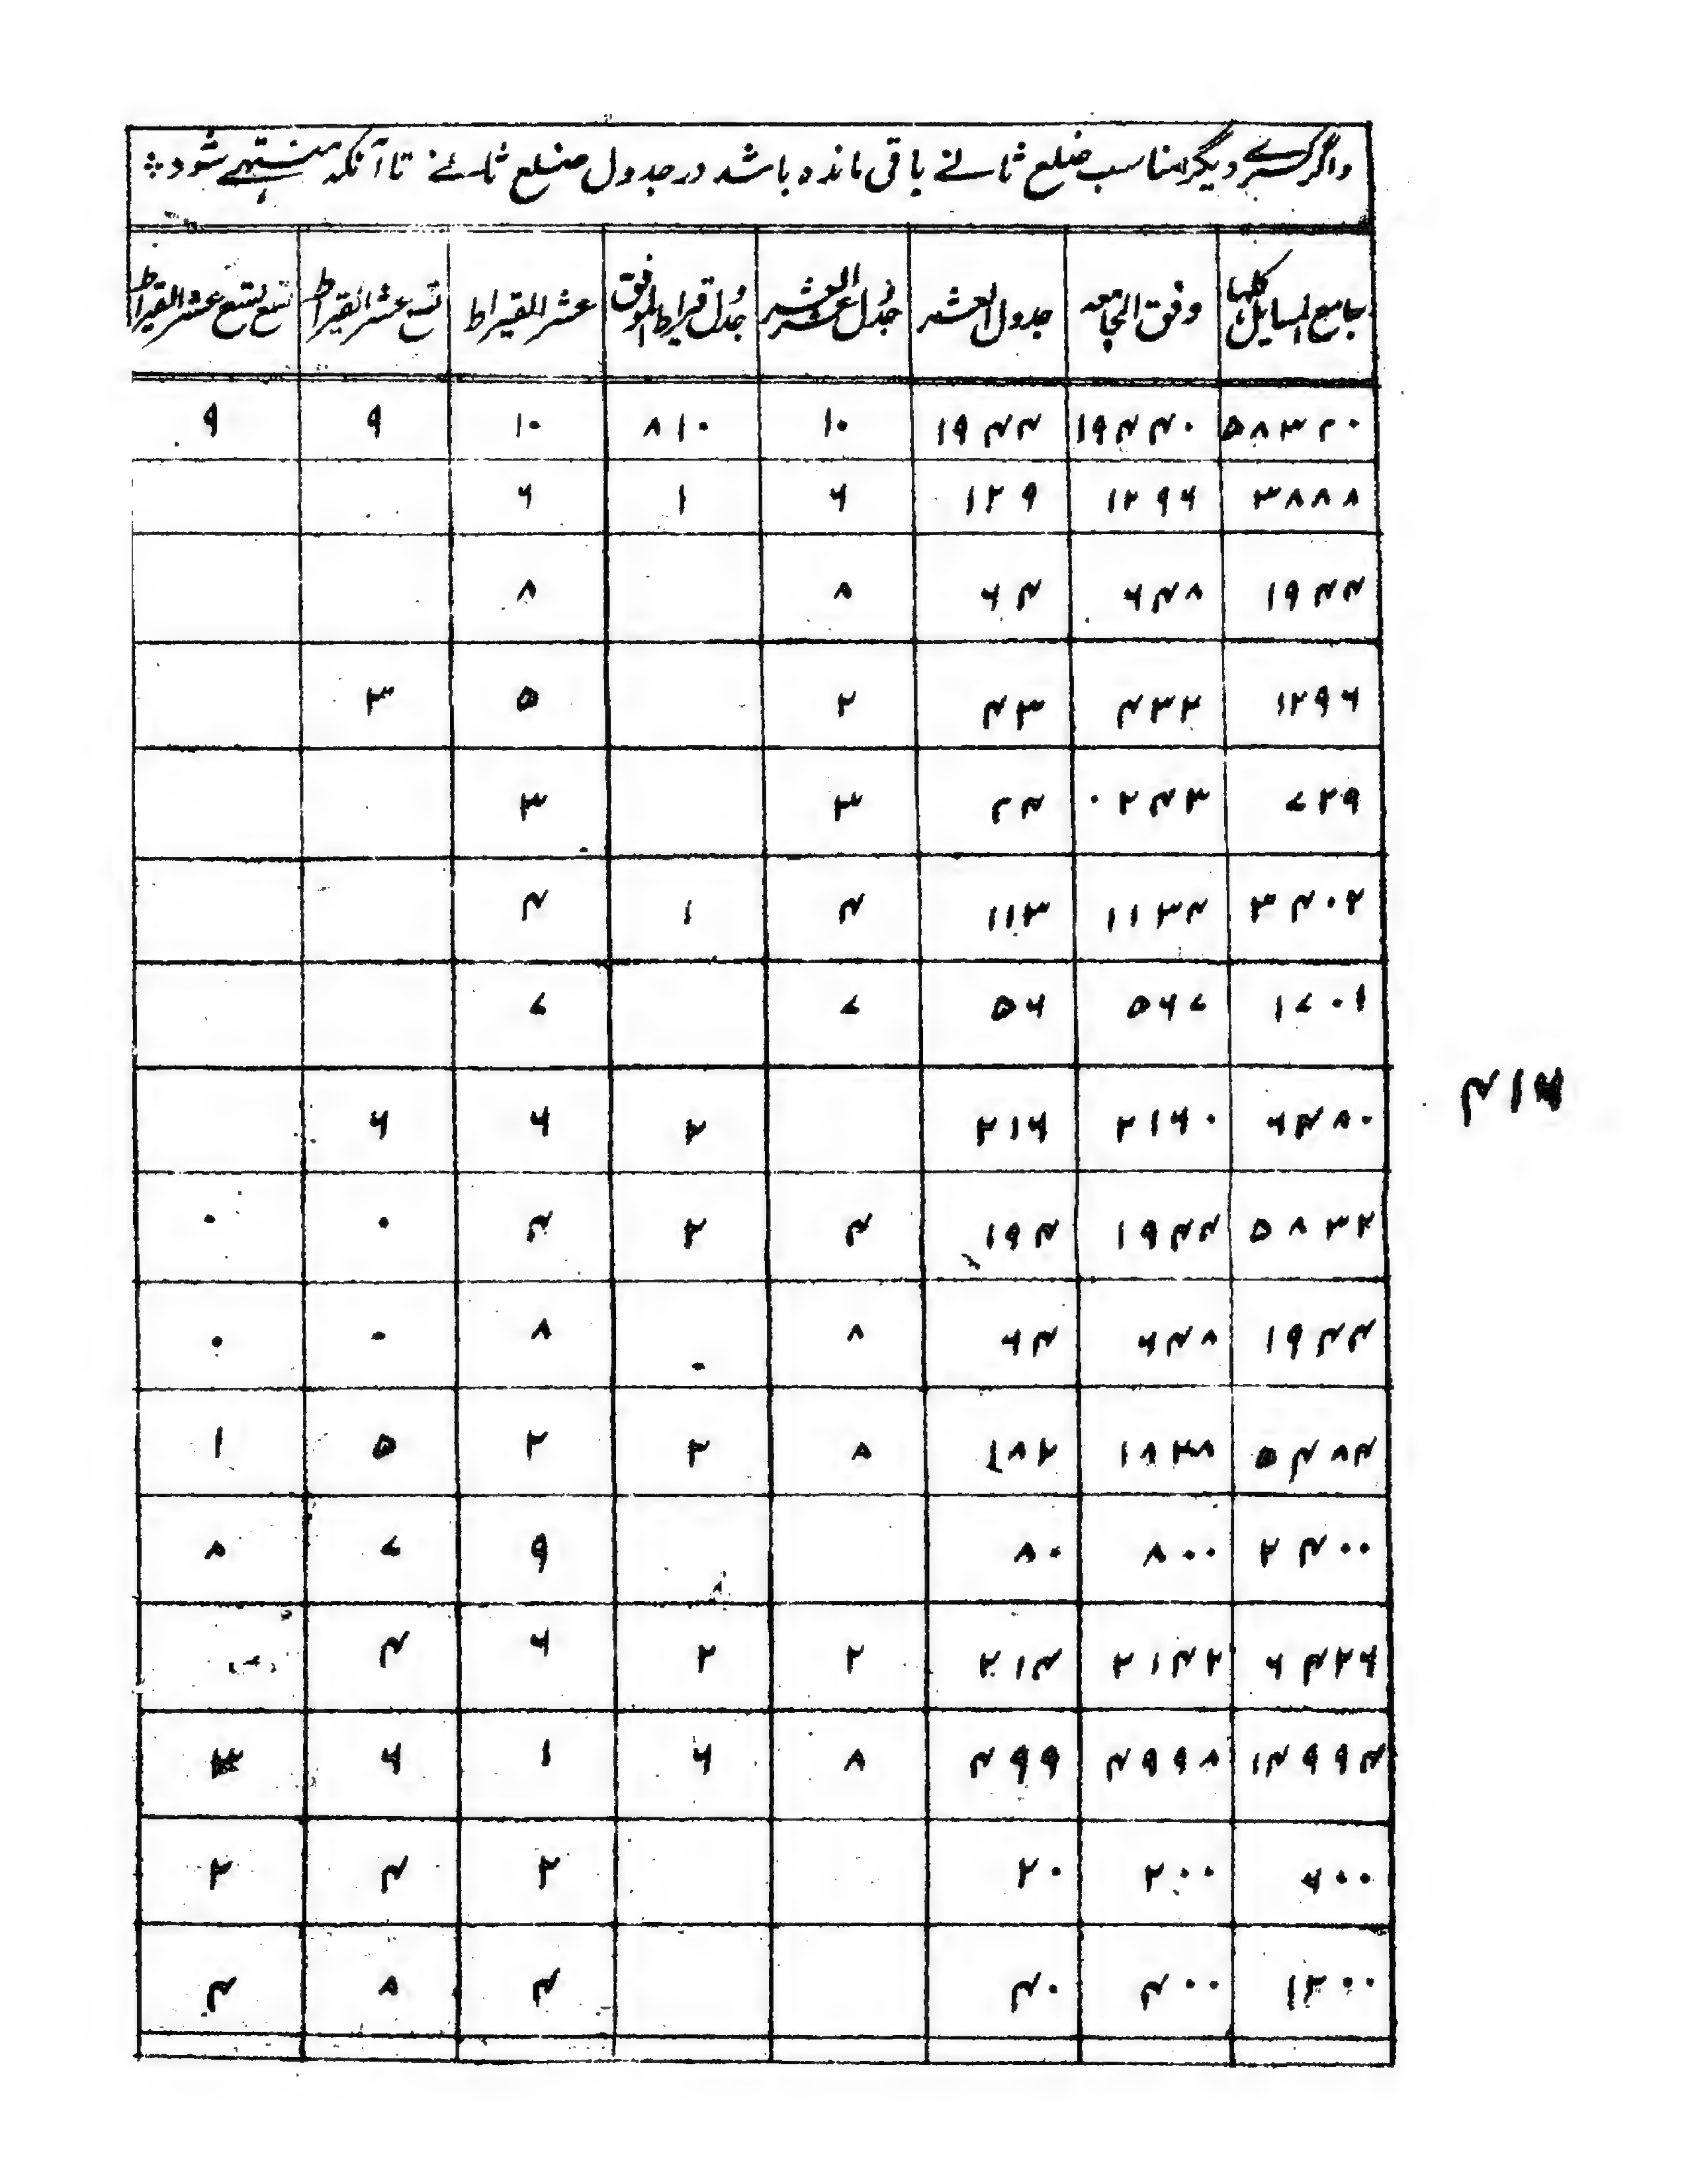 واگر کسرے دیگر مناسب ضلع ثانے باقی مانده باشد در جدول ضلع ثانے تا آنکه منتہے شود
جامع المسایل کلها وفق الجامعه جدول العشر جدول عشر العشر جدول قیراط الوفق عشر القیراط تسع عشر القیراط تسع تسع عشر القیراط
۵۸۳۲۰ ۱۹۴۴۰ ۱۹۴۴ ۱۰ ۸۱۰ ۱۰ ۹ ۹
۳۸۸۸ ۱۲۹۶ ۱۲۹ ۶ ۱ ۶
۱۹۴۴ ۶۴۸ ۶۴ ۸ ۸
۱۲۹۶ ۴۳۲ ۴۳ ۲ ۵ ۳
۷۲۹ ۰۲۴۳ ۲۴ ۳ ۳
۳۴۰۲ ۱۱۳۴ ۱۱۳ ۴ ۱ ۴
۱۷۰۱ ۵۶۷ ۵۶ ۷ ۷
۶۴۸۰ ۲۱۶۰ ۲۱۶ ۲ ۶ ۶
۵۸۳۲ ۱۹۴۴ ۱۹۴ ۴ ۲ ۴ ۰ ۰
۱۹۴۴ ۶۴۸ ۶۴ ۸ ۰ ۸ ۰ ۰
۵۴۸۴ ۱۸۲۸ ۱۸۲ ۸ ۲ ۲ ۵ ۱
۲۴۰۰ ۸۰۰ ۸۰ ۹ ۷ ۸
۶۴۲۶ ۲۱۴۲ ۲۱۴ ۲ ۲ ۶ ۴
۱۴۹۹۴ ۴۹۹۸ ۴۹۹ ۸ ۶ ۱ ۶
۶۰۰ ۲۰۰ ۲۰ ۲ ۴ ۲
۱۲۰۰ ۴۰۰ ۴۰ ۴ ۸ ۴